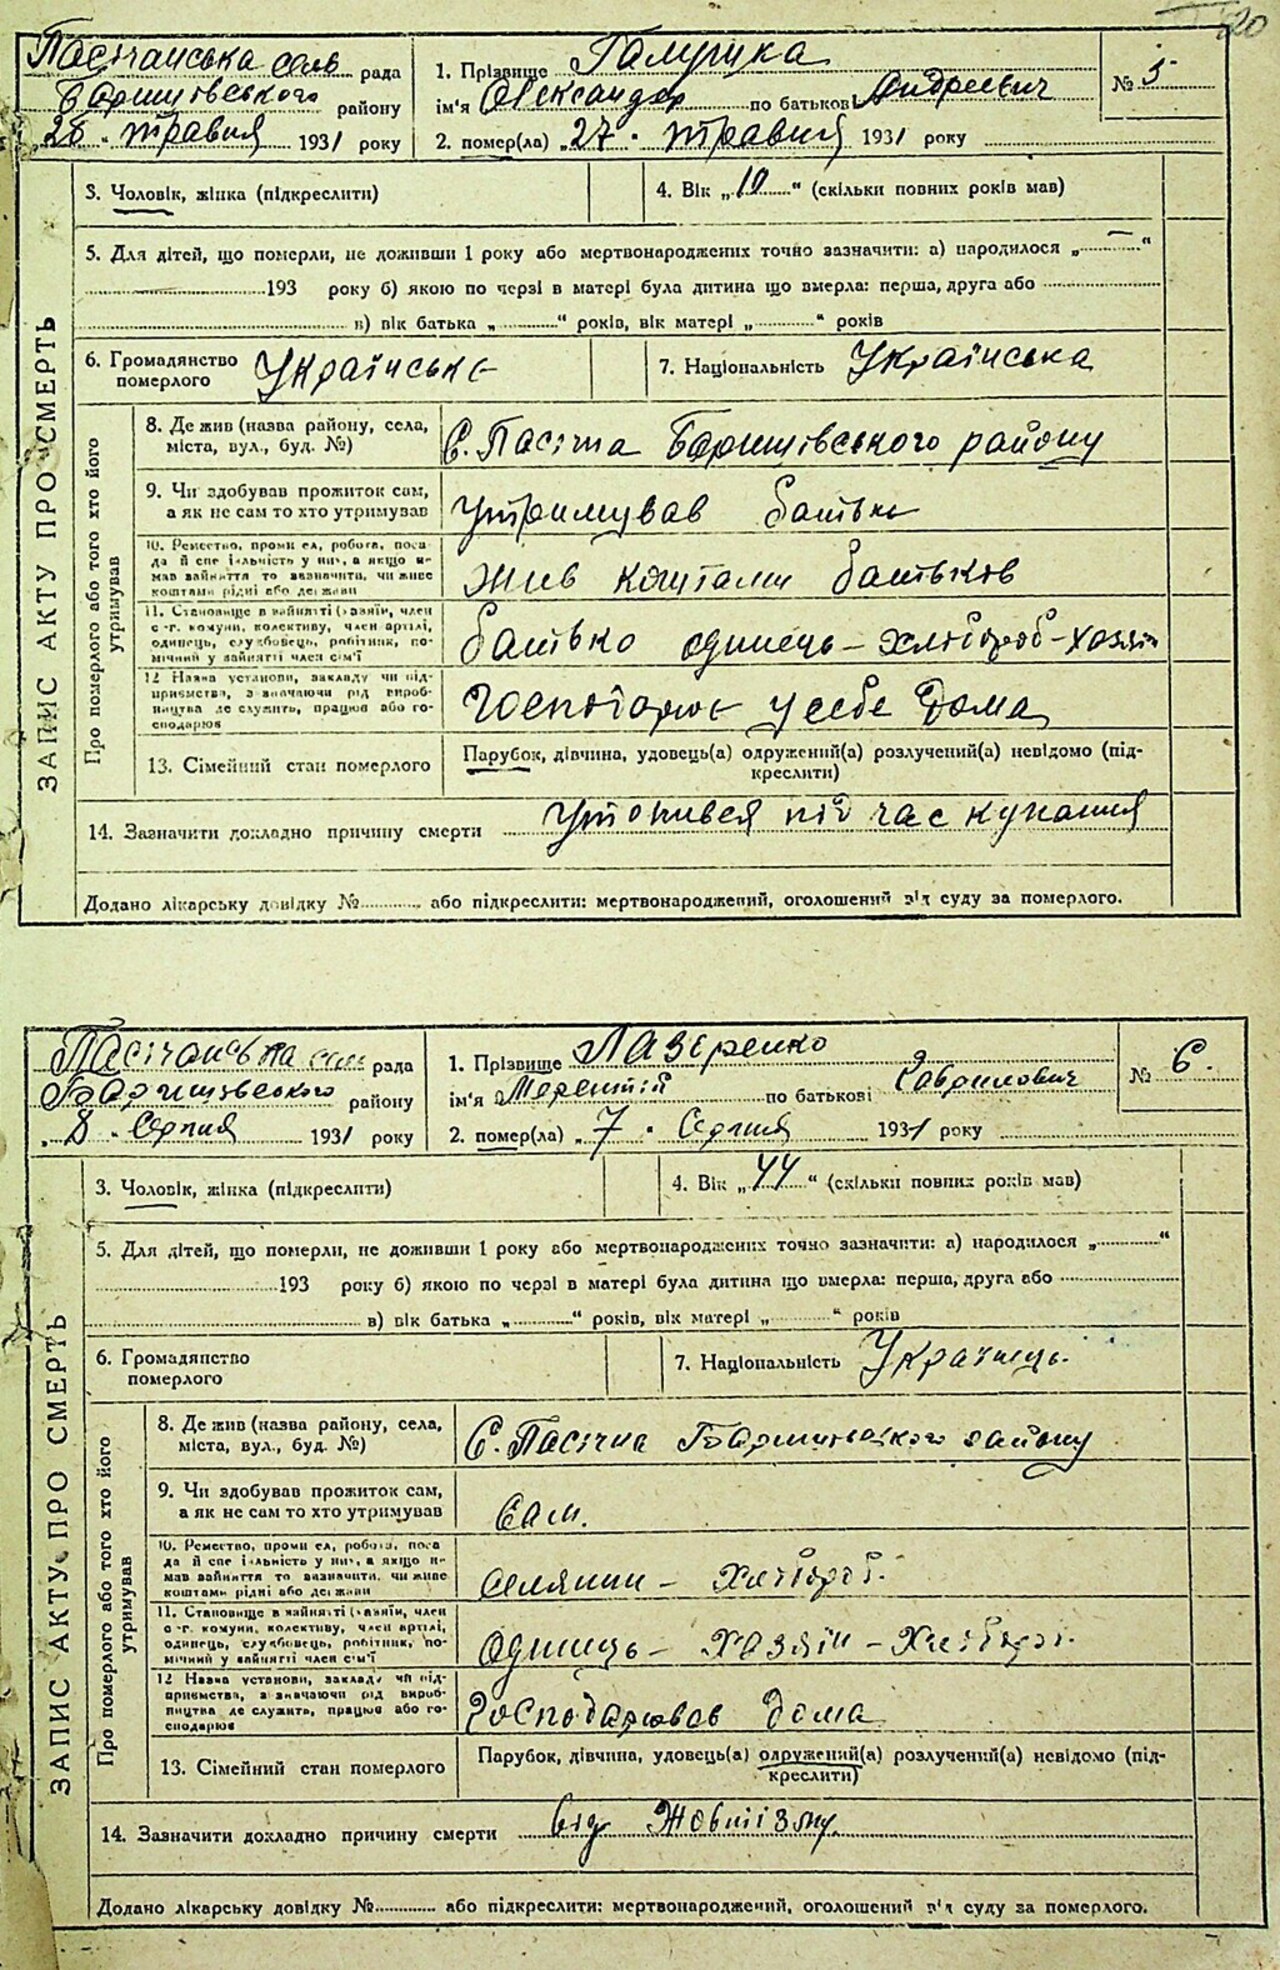 20
Пасічанська сель рада
Баришівського району
„28 " травня 1931 року
1. Прізвище Галушка
ім'я Олександер по батькові Андреевич
2. помер(ла) „27 " травня 1931 року
№ 5
ЗАПИС АКТУ ПРО СМЕРТЬ
3. Чоловік, жінка (підкреслити)
4. Вік „10“ (скільки повних років мав)
5. Для дітей, що померли, не доживши 1 року або мертвонароджених точно зазначити: а) народилося „—“
193 року б) якою по черзі в матері була дитина що вмерла: перша, друга або
в) вік батька „ “ років, вік матері „ “ років
6. Громадянство
померлого
Українське
7. Національність Українська
Про померлого або того хто його
утримував
8. Де жив (назва району, села,
міста, вул., буд. №)
С. Пасічна Баришівського району
9. Чи здобував прожиток сам,
а як не сам то хто утримував
Утримував батько
10. Ремество, промисел, робота, поса-
да й спеціяльність у них, а якщо н-
мав зайняття то зазначити, чи живе
коштами рідні або держави
жив коштами батьков
11. Становище в зайнятті (хазяїн, член
с.-г. комуни, колективу, член артілі,
одинець, службовець, робітник, по-
мічний у зайнятті член сім'ї
батько одинець – хлібороб - хозяін
12 Назва установи, закладу чи під-
приємства, зазначаючи рід вироб-
ництва де служить, працює або го-
сподарює
господарює у себе дома
13. Сімейний стан померлого
Парубок, дівчина, удовець(а) одружений(а) розлучений(а) невідомо (під-
креслити)
14. Зазначити докладно причину смерти утопився під час купання
Додано лікарську довідку № або підкреслити: мертвонароджений, оголошений від суду за померлого.
Пасічанська сель рада
Баришівського району
„8 " Серпня 1931 року
1. Прізвище Лазеренко
ім'я Терентій по батькові Гаврилович
2. помер(ла) „7 " Серпня 1931 року
№ 6.
ЗАПИС АКТУ ПРО СМЕРТЬ
3. Чоловік, жінка (підкреслити)
4. Вік „44“ (скільки повних років мав)
5. Для дітей, що померли, не доживши 1 року або мертвонароджених точно зазначити: а) народилося „ “
193 року б) якою по черзі в матері була дитина що вмерла: перша, друга або
в) вік батька „ “ років, вік матері „ “ років
6. Громадянство
померлого
7. Національність Українець.
Про померлого або того хто його
утримував
8. Де жив (назва району, села,
міста, вул., буд. №)
С. Пасічна Баришівського району
9. Чи здобував прожиток сам,
а як не сам то хто утримував
Сам.
10. Ремество, промисел, робота, поса-
да й спеціяльність у них, а якщо н-
мав зайняття то зазначити, чи живе
коштами рідні або держави
селянин – хлібороб.
11. Становище в зайнятті (хазяїн, член
с.-г. комуни, колективу, член артілі,
одинець, службовець, робітник, по-
мічний у зайнятті член сім'ї
одинець – хазяін – хлібороб.
12 Назва установи, закладу чи під-
приємства, зазначаючи рід вироб-
ництва де служить, працює або го-
сподарює
Господарював дома
13. Сімейний стан померлого
Парубок, дівчина, удовець(а) одружений(а) розлучений(а) невідомо (під-
креслити)
14. Зазначити докладно причину смерти від
Додано лікарську довідку № або підкреслити: мертвонароджений, оголошений від суду за померлого.